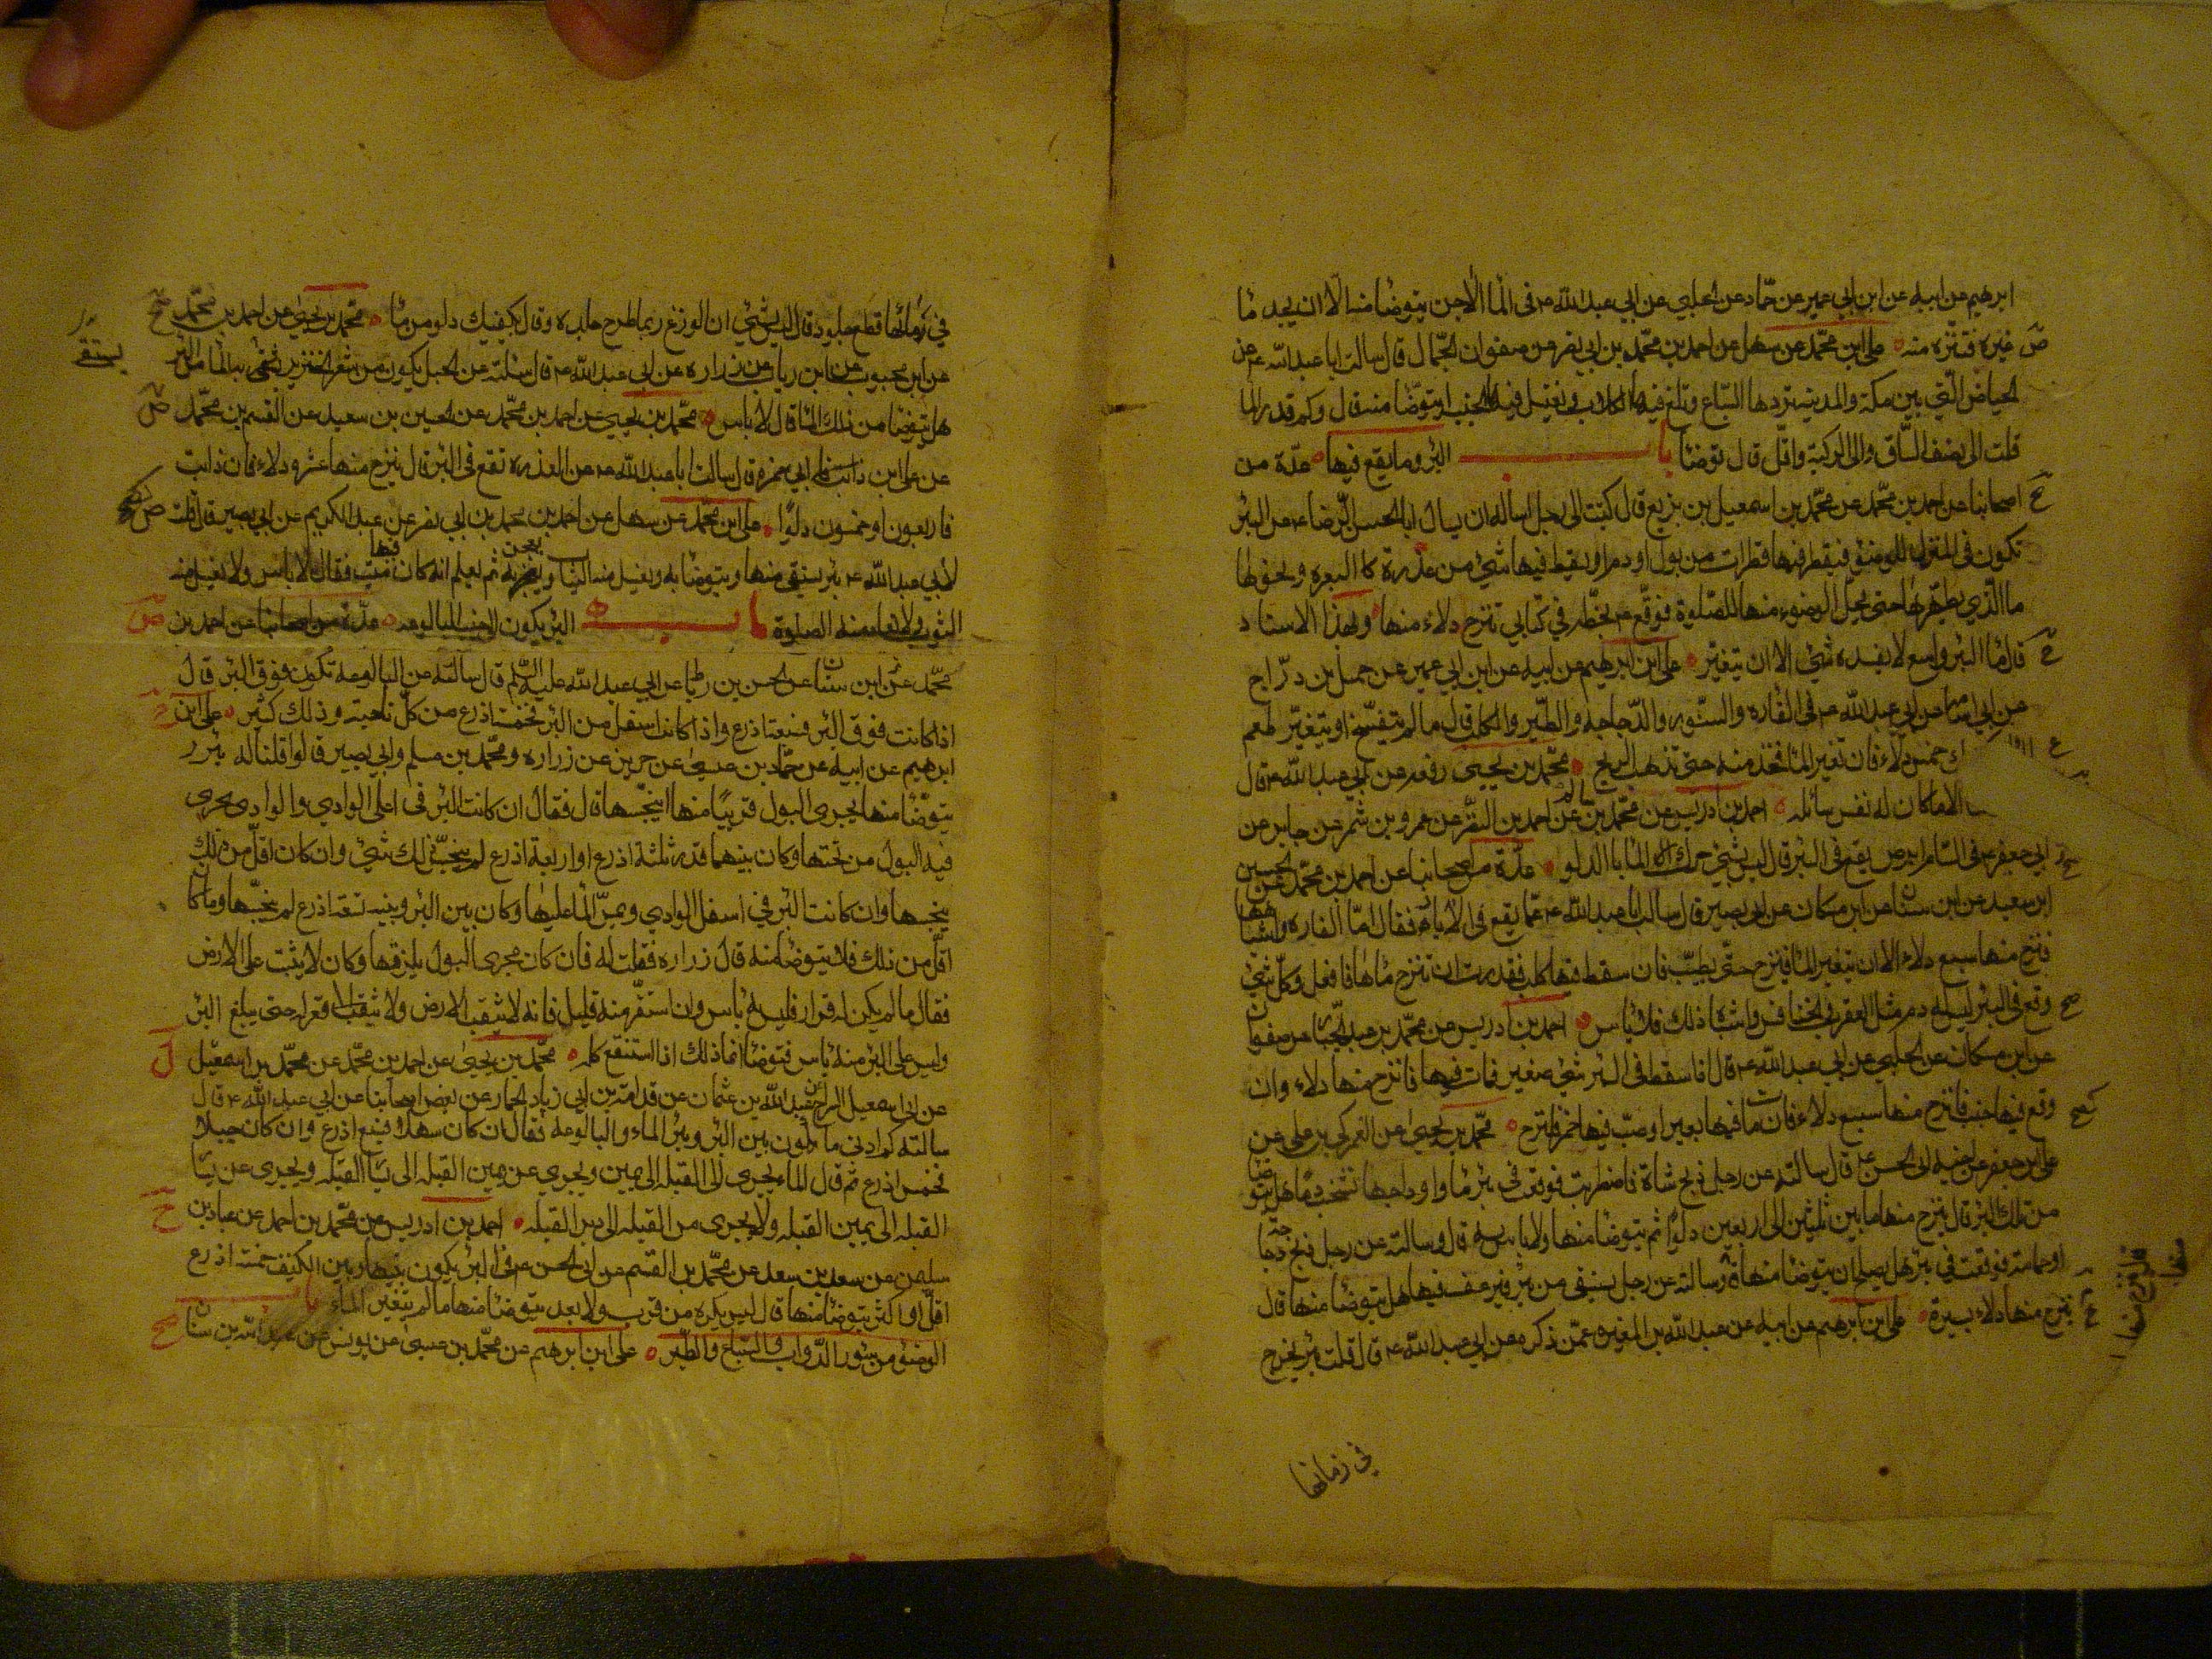 ابرهيم عن ابيه عن ابن ابي عمير عن حماد عن الحلبي عن ابي عبد الله ع في الماء الآجن يتوضأ منه الا ان يجد ماء
غيره فتنزه منه علي ابن محمد عن سهل عن احمد بن محمد بن ابي نصر عن صفوان الجمال قال سالت ابا عبد الله ع عن
الحياض التي بين مكة والمدينة تردها السباع وتلغ فيها الكلاب ويغتسل فيها الجنب ايتوضا منه قال وكم قدر الماء
قلت الى نصف الساق والى الركبة واقل قال توضا باب البئر وما يقع فيها عدة من
اصحابنا عن احمد بن محمد عن محمد بن اسمعيل بن بزيع قال كتبت الى رجل اساله ان يسال ابا الحسن الرضا ع عن البئر
تكون في المنزل للوضوء فيقطر فيها قطرات من بول او دم او يسقط فيها شيء من عذرة كالبعرة ونحوها
ما الذي يطهرها حتى يحل الوضوء منها للصلوة فوقع ع بخطه في كتابي تنزح دلاء منها وبهذا الاسناد
قال ماء البئر واسع لا يفسده شيء الا ان يتغير علي ابن ابرهيم عن ابيه عن ابن ابي عمير عن جميل بن دراج
عن ابي اسامة عن ابي عبد الله ع في الفاره والسنور والدجاجه والطير والكلب قال ما لم يتفسخ او يتغير طعم
خمس دلاء فان تغير الماء فخذ منه حتى تذهب الريح محمد بن يحيى رفعه عن ابي عبد الله ع قال
الا ما كان له نفس سائله احمد بن ادريس عن محمد بن سالم عن احمد بن النضر عن عمرو بن شمر عن جابر عن
ابي جعفر ع في السام ابرص يقع في البئر قال ليس بشيء حرك الماء بالدلو عدة من اصحابنا عن احمد بن محمد عن الحسين
ابن سعيد عن ابن سنان عن ابن مسكان عن ابي بصير قال سالت ابا عبد الله ع عما يقع في الآبار فقال اما الفاره واشباهها
فينزح منها سبع دلاء الا ان يتغير الماء فينزح حتى يطيب فان سقط فيها كلب فقدرت ان تنزح ماءها فافعل وكل شيء
وقع في البئر ليس له دم مثل العقرب والخنافس واشباه ذلك فلا باس احمد بن ادريس عن محمد بن عبد الجبار عن صفوان
عن ابن مسكان عن الحلبي عن ابي عبد الله ع قال اذا سقط في البئر شيء صغير فمات فيها فانزح منها دلاء وان
وقع فيها جنب فانزح منها سبع دلاء فان مات فيها بعير او صب فيها خمر فلتنزح محمد بن يحيى عن العمركي بن علي عن
علي ابن جعفر عن اخيه ابي الحسن ع قال سالته عن رجل ذبح شاة فاضطربت فوقعت في بئر ماء واوداجها تشخب دما هل يتوضا
من تلك البئر قال ينزح منها ما بين ثلثين الى اربعين دلوا ثم يتوضا منها ولا باس به قال وسالته عن رجل ذبح دجاجة
او حمامة فوقعت في بئر هل يصلح ان يتوضا منها وسالته عن رجل يستقى من بئر فيرعف فيها هل يتوضا منها قال
ينزح منها دلاء يسيرة علي ابن ابرهيم عن ابيه عن عبد الله بن المغيره عمن ذكره عن ابي عبد الله ع قال قلت بئر يخرج
في زمائها
في مائها قطع جلود قال ليس بشيء ان الوزغ ربما طرح جلده وقال يكفيك دلو من ماء محمد بن يحيى عن احمد بن محمد
عن ابن محبوب عن ابن رياب عن زراره عن ابي عبد الله ع قال سئلته عن الحبل يكون من شعر الخنزير يستقى به الماء من البئر
هل يتوضا من ذلك الماء قال لا باس محمد بن يحيى عن احمد بن محمد عن الحسين بن سعيد عن القسم بن محمد
عن علي ابن ابي حمزه قال سالت ابا عبد الله ع عن العذره تقع في البئر قال ينزح منها عشر دلاء فان ذابت
فاربعون او خمسون دلوا علي ابن محمد عن سهل عن احمد بن محمد بن ابي نصر عن عبد الكريم عن ابي بصير قال قلت
لابي عبد الله ع بئر يستقى منها ويتوضا به ويغسل منه الثياب ويعجن به ثم يعلم انه كان فيها ميت فقال لا باس ولا يغسل منه
الثوب ولا تعاد منه الصلوة باب البئر يكون الى جنب البالوعه عدة من اصحابنا عن احمد بن
محمد عن ابن سنان عن الحسن بن رباط عن ابي عبد الله عليه السلم قال سالته عن البالوعة تكون فوق البئر قال
اذا كانت فوق البئر فسبعة اذرع واذا كانت اسفل من البئر فخمسة اذرع من كل ناحية وذلك كثير علي ابن
ابرهيم عن ابيه عن حماد بن عيسى عن حريز عن زراره ومحمد بن مسلم وابي بصير قالوا قلنا له بئر
يتوضا منها يجري البول قريبا منها اينجسها قال فقال ان كانت البئر في اعلى الوادي والوادي يجري
فيه البول من تحتها وكان بينهما قدر ثلثة اذرع او اربعة اذرع لم ينجس ذلك شيء وان كان اقل من ذلك
ينجسها وان كانت البئر في اسفل الوادي ويمر الماء عليها وكان بين البئر وبينه تسعة اذرع لم ينجسها وما كان
اقل من ذلك فلا يتوضا منه قال زراره فقلت له فان كان مجرى البول يلزقها وكان لا يثبت على الارض
فقال ما لم يكن له قرار فليس به باس وان استقر منه قليل فانه لا يثقب الارض ولا قعر له حتى يبلغ البئر
وليس على البئر منه باس فتوضا انما ذلك اذا استنقع كله محمد بن يحيى عن احمد بن محمد عن محمد بن اسمعيل
عن ابي اسمعيل السراج عن عبد الله بن عثمان عن قدامة بن ابي زياد الحمار عن بعض اصحابنا عن ابي عبد الله ع قال
سالته كم ادنى ما يكون بين البئر وبئر الماء والبالوعة فقال ان كان سهلا فسبع اذرع وان كان جبلا
فخمس اذرع ثم قال الماء يجري الى القبلة الى يمين ويجري عن يمين القبله الى يسار القبله ويجري عن يسار
القبله الى يمين القبله ولا يجري من القبله الى دبر القبله احمد بن ادريس عن محمد بن احمد عن عباد بن
سليمن عن سعد بن سعد عن محمد بن القسم عن ابي الحسن ع في البئر يكون بينها وبين الكنيف خمسة اذرع
اقل او اكثر يتوضا منها قال ليس يكره من قرب ولا بعد يتوضا منها ما لم يتغير الماء باب
الوضوء من سؤر الدواب والسباع والطير علي ابن ابرهيم عن محمد بن عيسى عن يونس عن عبد الله بن سنان